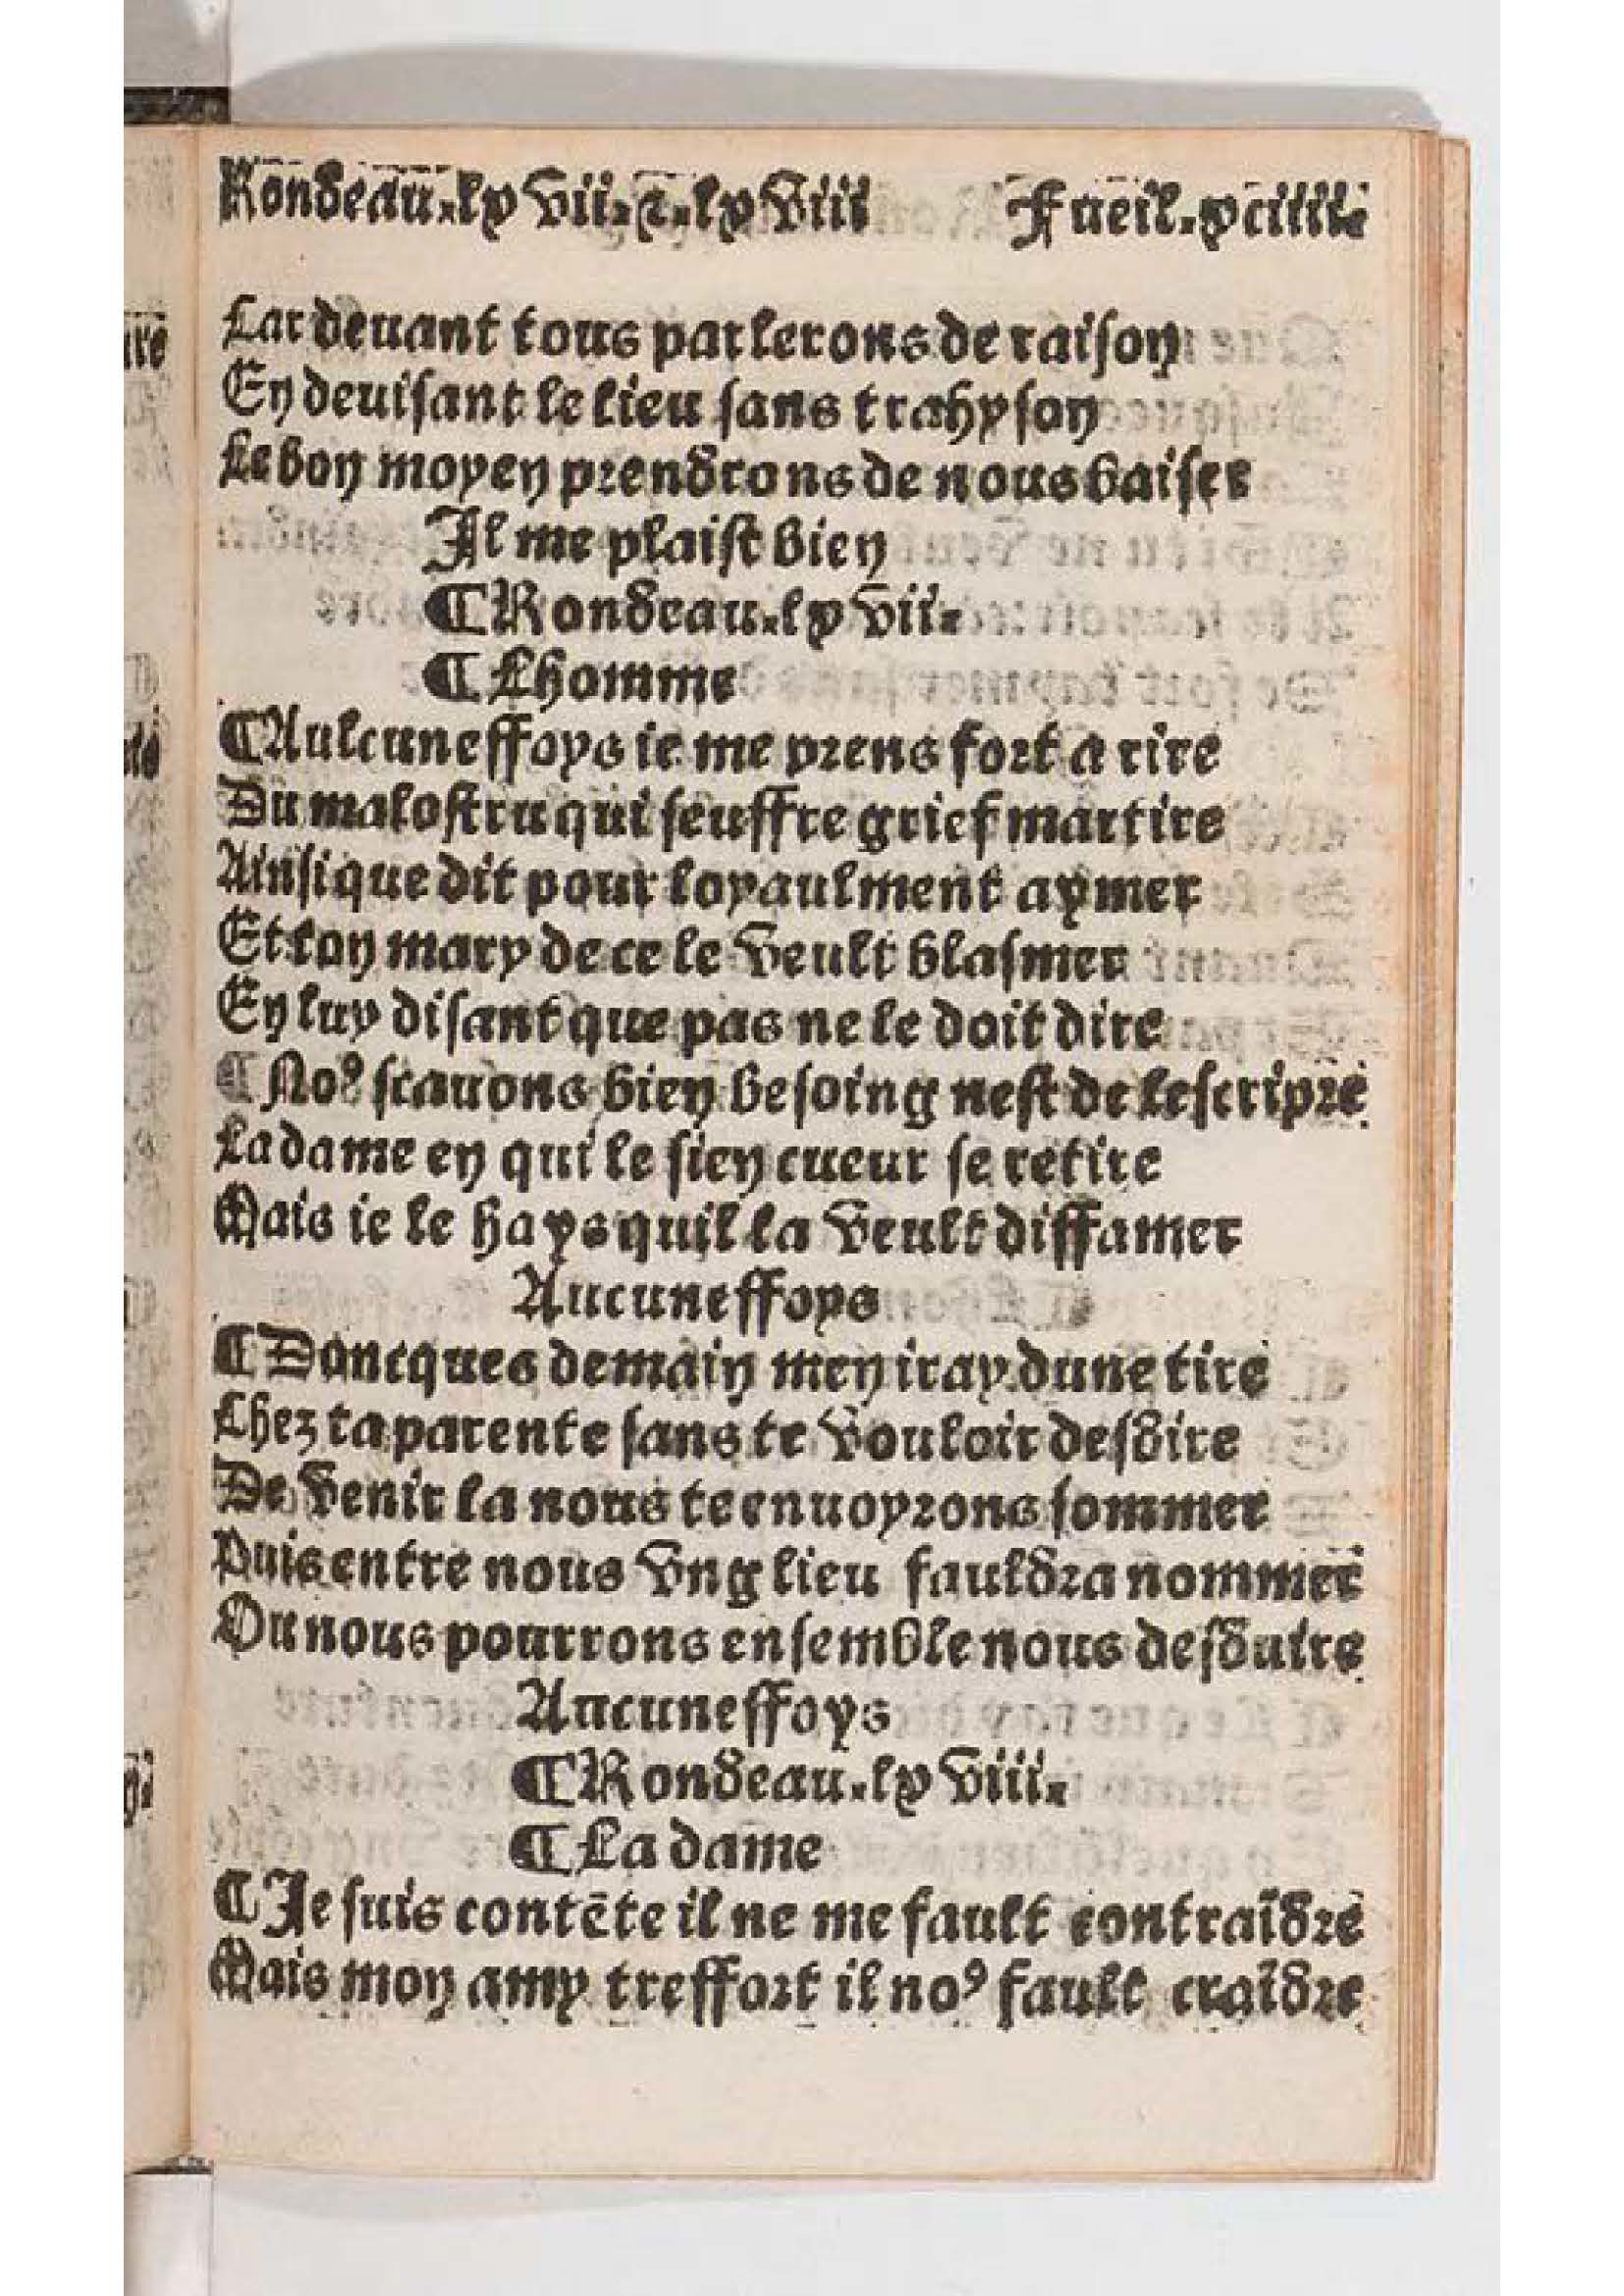 Rondeau.lxvii.⁊.lxviii Fueil.xciiii.
Car deuant tous parlerons de raison
En deuisant le lieu sans trahyson
Le bon moyen prendrons de nous baiser
Il me plaist bien
¶Rondeau.lxvii.
¶Lhomme
¶Aulcuneffoys ie me prens fort a rire
Du malostru qui seuffre grief martire
Ainsi que dit pour loyaulment aymer
Et ton mary de ce le veult blasmer
En luy disant que pas ne le doit dire
¶Noꝰ scauons bien besoing nest de lescripre
La dame en qui le sien cueur se retire
Mais ie le hays quil la veult diffamer
Aucuneffoys
¶Doncques demain men iray dune tire
Chez ta parente sans te vouloir desdire
De venir la nous te enuoyrons sommer
Puis entre nous vng lieu fauldra nommer
Ou nous pourrons ensemble nous desduire
Aucuneffoys
¶Rondeau.lxviii.
¶La dame
¶Je suis contēte il ne me fault contraīdre
Mais mon amy treffort il noꝰ fault craīdre